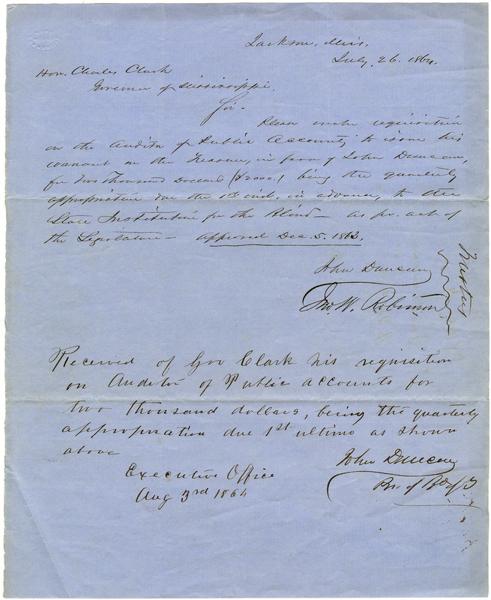 Jackson, Miss,
July 26. 1864.
Hon. Charles Clark
Governor of Mississippi.
Sir.
Please make requisition
on the Auditor of Public Accounts to issue his
warrant on the Treasurer, in favor of John Duncan,
for Two Thousand Dollars ($2000.) being the quarterly
appropriation due the 1st inst. in advance, to the
State Institution for the Blind — as pr. act of
the Legislature — approved Dec. 5. 1863.
John Duncan
Jno. W. Robinson
Trustees
Received of Gov Clark his requisition
on Auditor of Public accounts for
two thousand dollars, being the quarterly
appropriation due 1st ultimo as shown
above
John Duncan
Pr. of Bd of T
Executive Office
Aug 3rd 1864